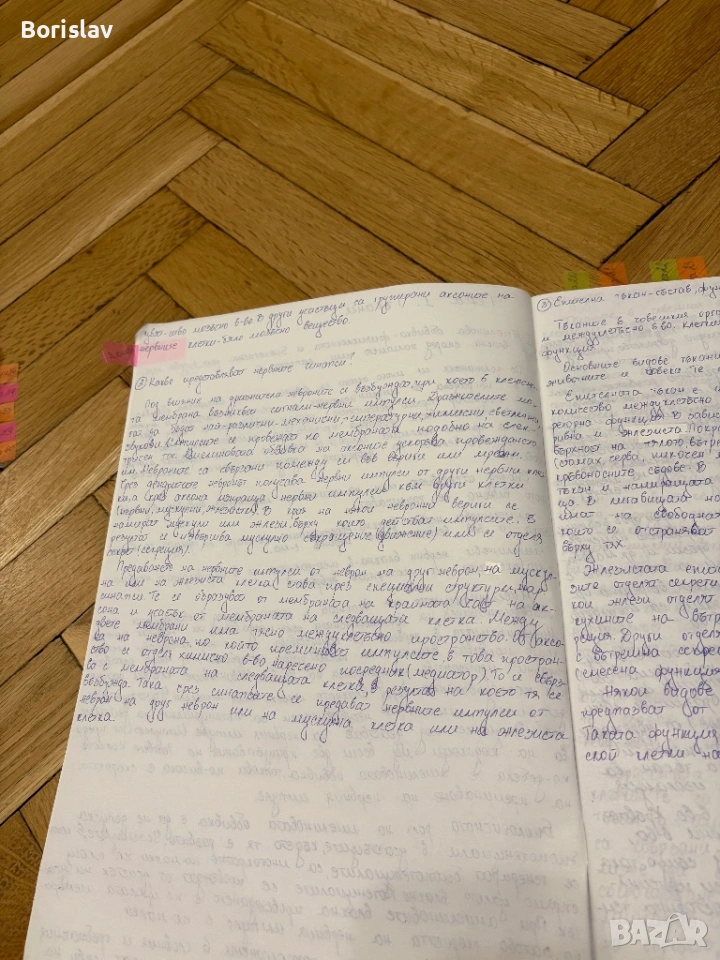 Borislav
сиво мозъчно в-во. В други участъци са групирани аксоните на
нервните клетки - бяло мозъчно вещество.
② Какво представляват нервните синапси?
Под влияние на дразнители невроните се възбуждат, при което в клетъчна-
та мембрана възникват сигнали - нервни импулси. Дразнителите мо-
гат да бъдат най-различни - механични, температурни, химични, светлинни,
звукови. Импулсите се провеждат по мембраната, подобно на елек-
трически ток. Миелиновата обвивка на аксоните ускорява провеждането
им. Невроните са свързани помежду си във вериги или мрежи.
Чрез дендритите невронът получава нервни импулси от други нервни кле-
тки, а чрез аксона изпраща нервни импулси към други клетки
(нервни, мускулни, жлезисти). В края на някои невронни вериги се
намират мускули или жлези, върху които действат импулсите. В
резултат се извършва мускулно съкращение (движение) или се отделя
секрет (секреция).
Предаването на нервните импулси от неврон на друг неврон, на мускул-
на или на жлезиста клетка става чрез специални структури, нар.
синапси. Те се образуват от мембраната на крайната част на ак-
сона и участък от мембраната на следващата клетка. Между
двете мембрани има тясно междуклетъчно пространство. От аксо-
на на неврона, по който преминават импулсите, в това простран-
ство се отделя химично в-во, наречено посредник (медиатор). То се свърз-
ва с мембраната на следващата клетка, в резултат на което тя се
възбужда. Така чрез синапсите се предават нервните импулси от
неврон на друг неврон или на мускулна клетка или на жлезиста
клетка.
③ Епителна тъкан - състав, фун
Тъканите в човешкия орга
и междуклетъчно в-во, клетки
функция.
Основните видове тъкани
животните и човека са
Епителната тъкан е
количество междуклетъчно
функция. В зави
ривна и жлезиста. Покри
върхност на тялото, вътре
(стомах, черва,
кръвоносните съдове. В
тъкан и намиращата
ща. В
имат на свободнат
които се отстраняват
върху тях.
Жлезистата епит
зите отделят секрети
кои жлези отделят
кухините на вътр
Други отделя
с вътрешна секрец
смесена функция
Някои видове
предпазват от
Такава функция
ской клетки на
BAZAR